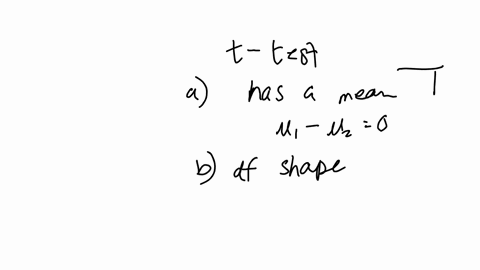 t-test
a) has a mean T
μ₁ - μ₂ = 0
b) df shape